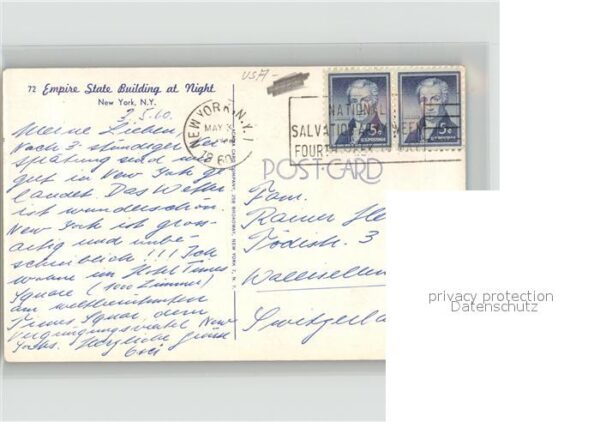 USA-
72 Empire State Building at Night
New York, N.Y.
3.5.60.
Meine Lieben,
Nach 3-stündiger Ver
spätung sind wir
gut in New York ge
landet. Das Wetter
ist wunderschön.
New York ist gross-
artig und unbe-
schreiblich!!! Ich
wohne im Hotel Times
Square ( Zimmer)
am weltberühmten
Times Square, dem
Vergnügungsviertel New
Yorks. Herzliche Grüsse
NEW YORK, N.Y. 1
MAY 3
1960
NATIONAL
SALVATION ARMY WEEK
FOURTH
5¢ 5¢
POST CARD
Fam.
Rainer
Tödistr. 3
Wallisellen
Switzerland
privacy protection
Datenschutz